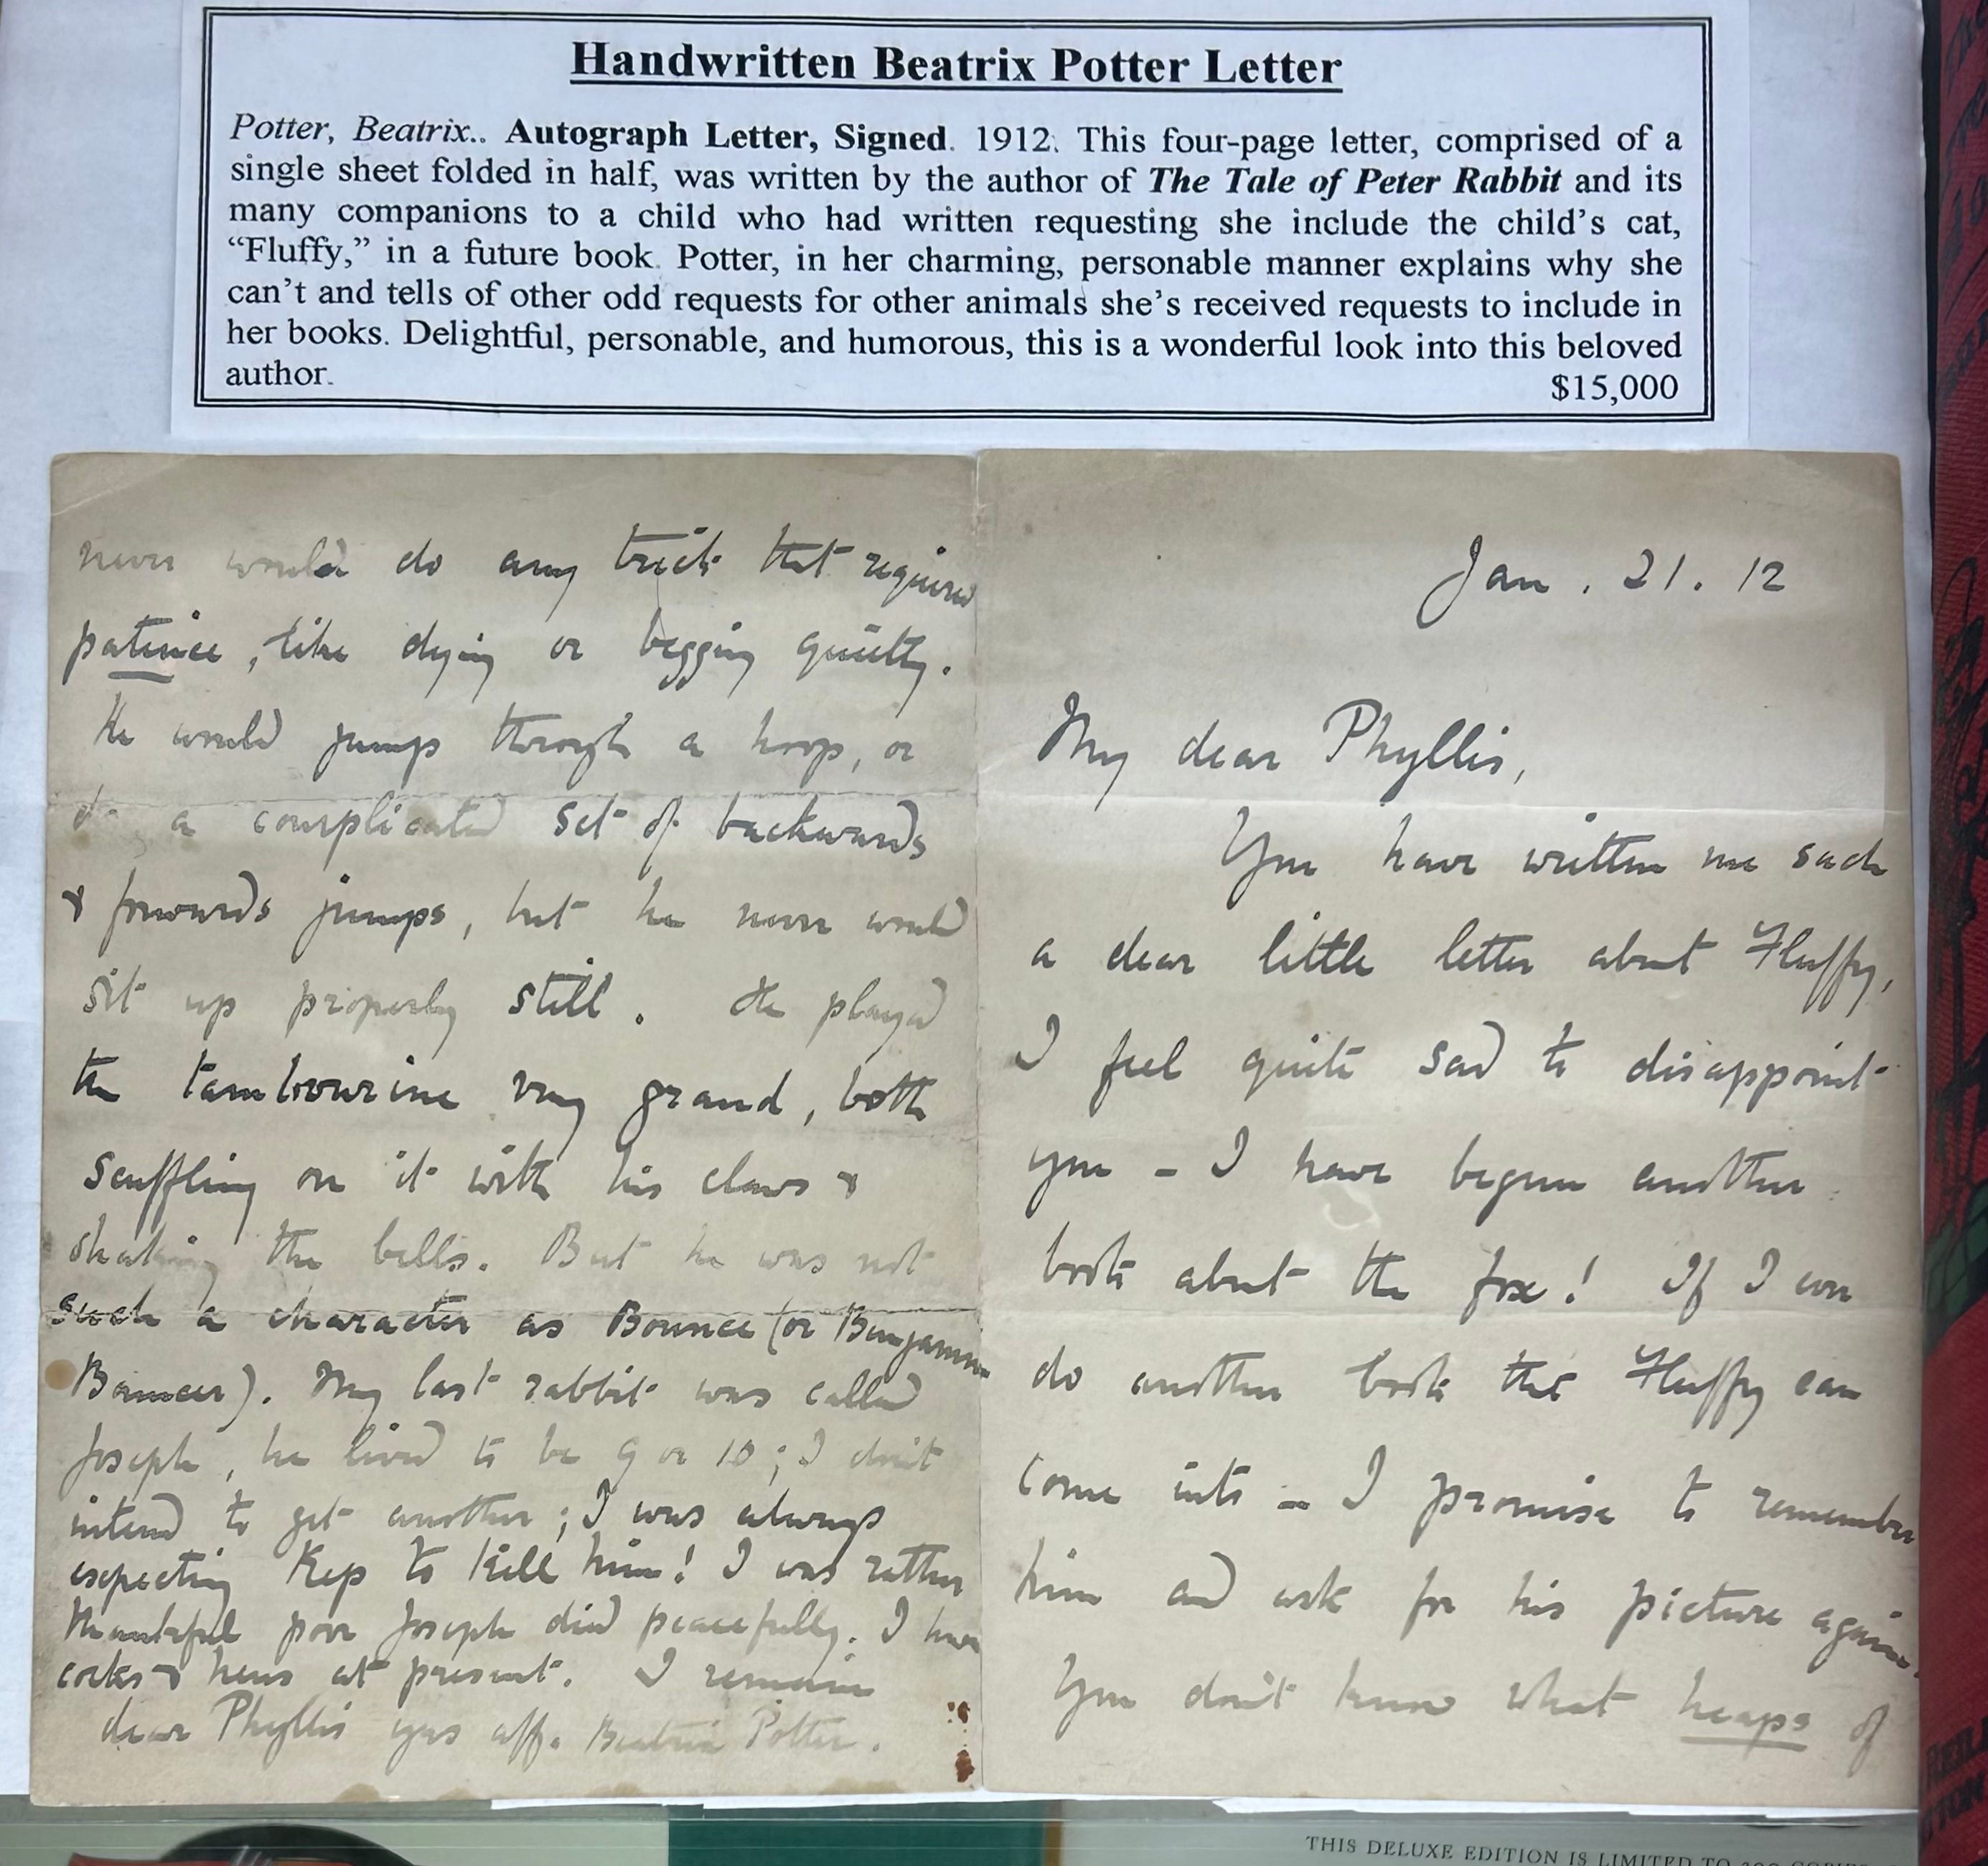 Handwritten Beatrix Potter Letter
Potter, Beatrix.. Autograph Letter, Signed. 1912. This four-page letter, comprised of a
single sheet folded in half, was written by the author of The Tale of Peter Rabbit and its
many companions to a child who had written requesting she include the child's cat,
“Fluffy,” in a future book. Potter, in her charming, personable manner explains why she
can't and tells of other odd requests for other animals she's received requests to include in
her books. Delightful, personable, and humorous, this is a wonderful look into this beloved
author.
$15,000
never would do any trick that required
patience, like dying or begging quietly.
He would jump through a hoop, or
do a complicated set of backwards
& forwards jumps, but he never would
sit up properly still. He played
the tambourine very grand, both
scuffling on it with his claws &
shaking the bells. But he was not
such a character as Bounce (or Benjamin
Bouncer). My last rabbit was called
Joseph, he lived to be 9 or 10; I don't
intend to get another; I was always
expecting Kep to kill him! I was rather
thankful poor Joseph died peacefully. I have
cocks & hens at present. I remain
dear Phyllis yrs aff. Beatrix Potter.
Jan. 21. 12
My dear Phyllis,
You have written me such
a dear little letter about Fluffy,
I feel quite sad to disappoint
you - I have begun another
book about the fox! If I ever
do another book that Fluffy can
come into - I promise to remember
him and ask for his picture again.
You don't know what heaps of
THIS DELUXE EDITION IS LIMITED TO